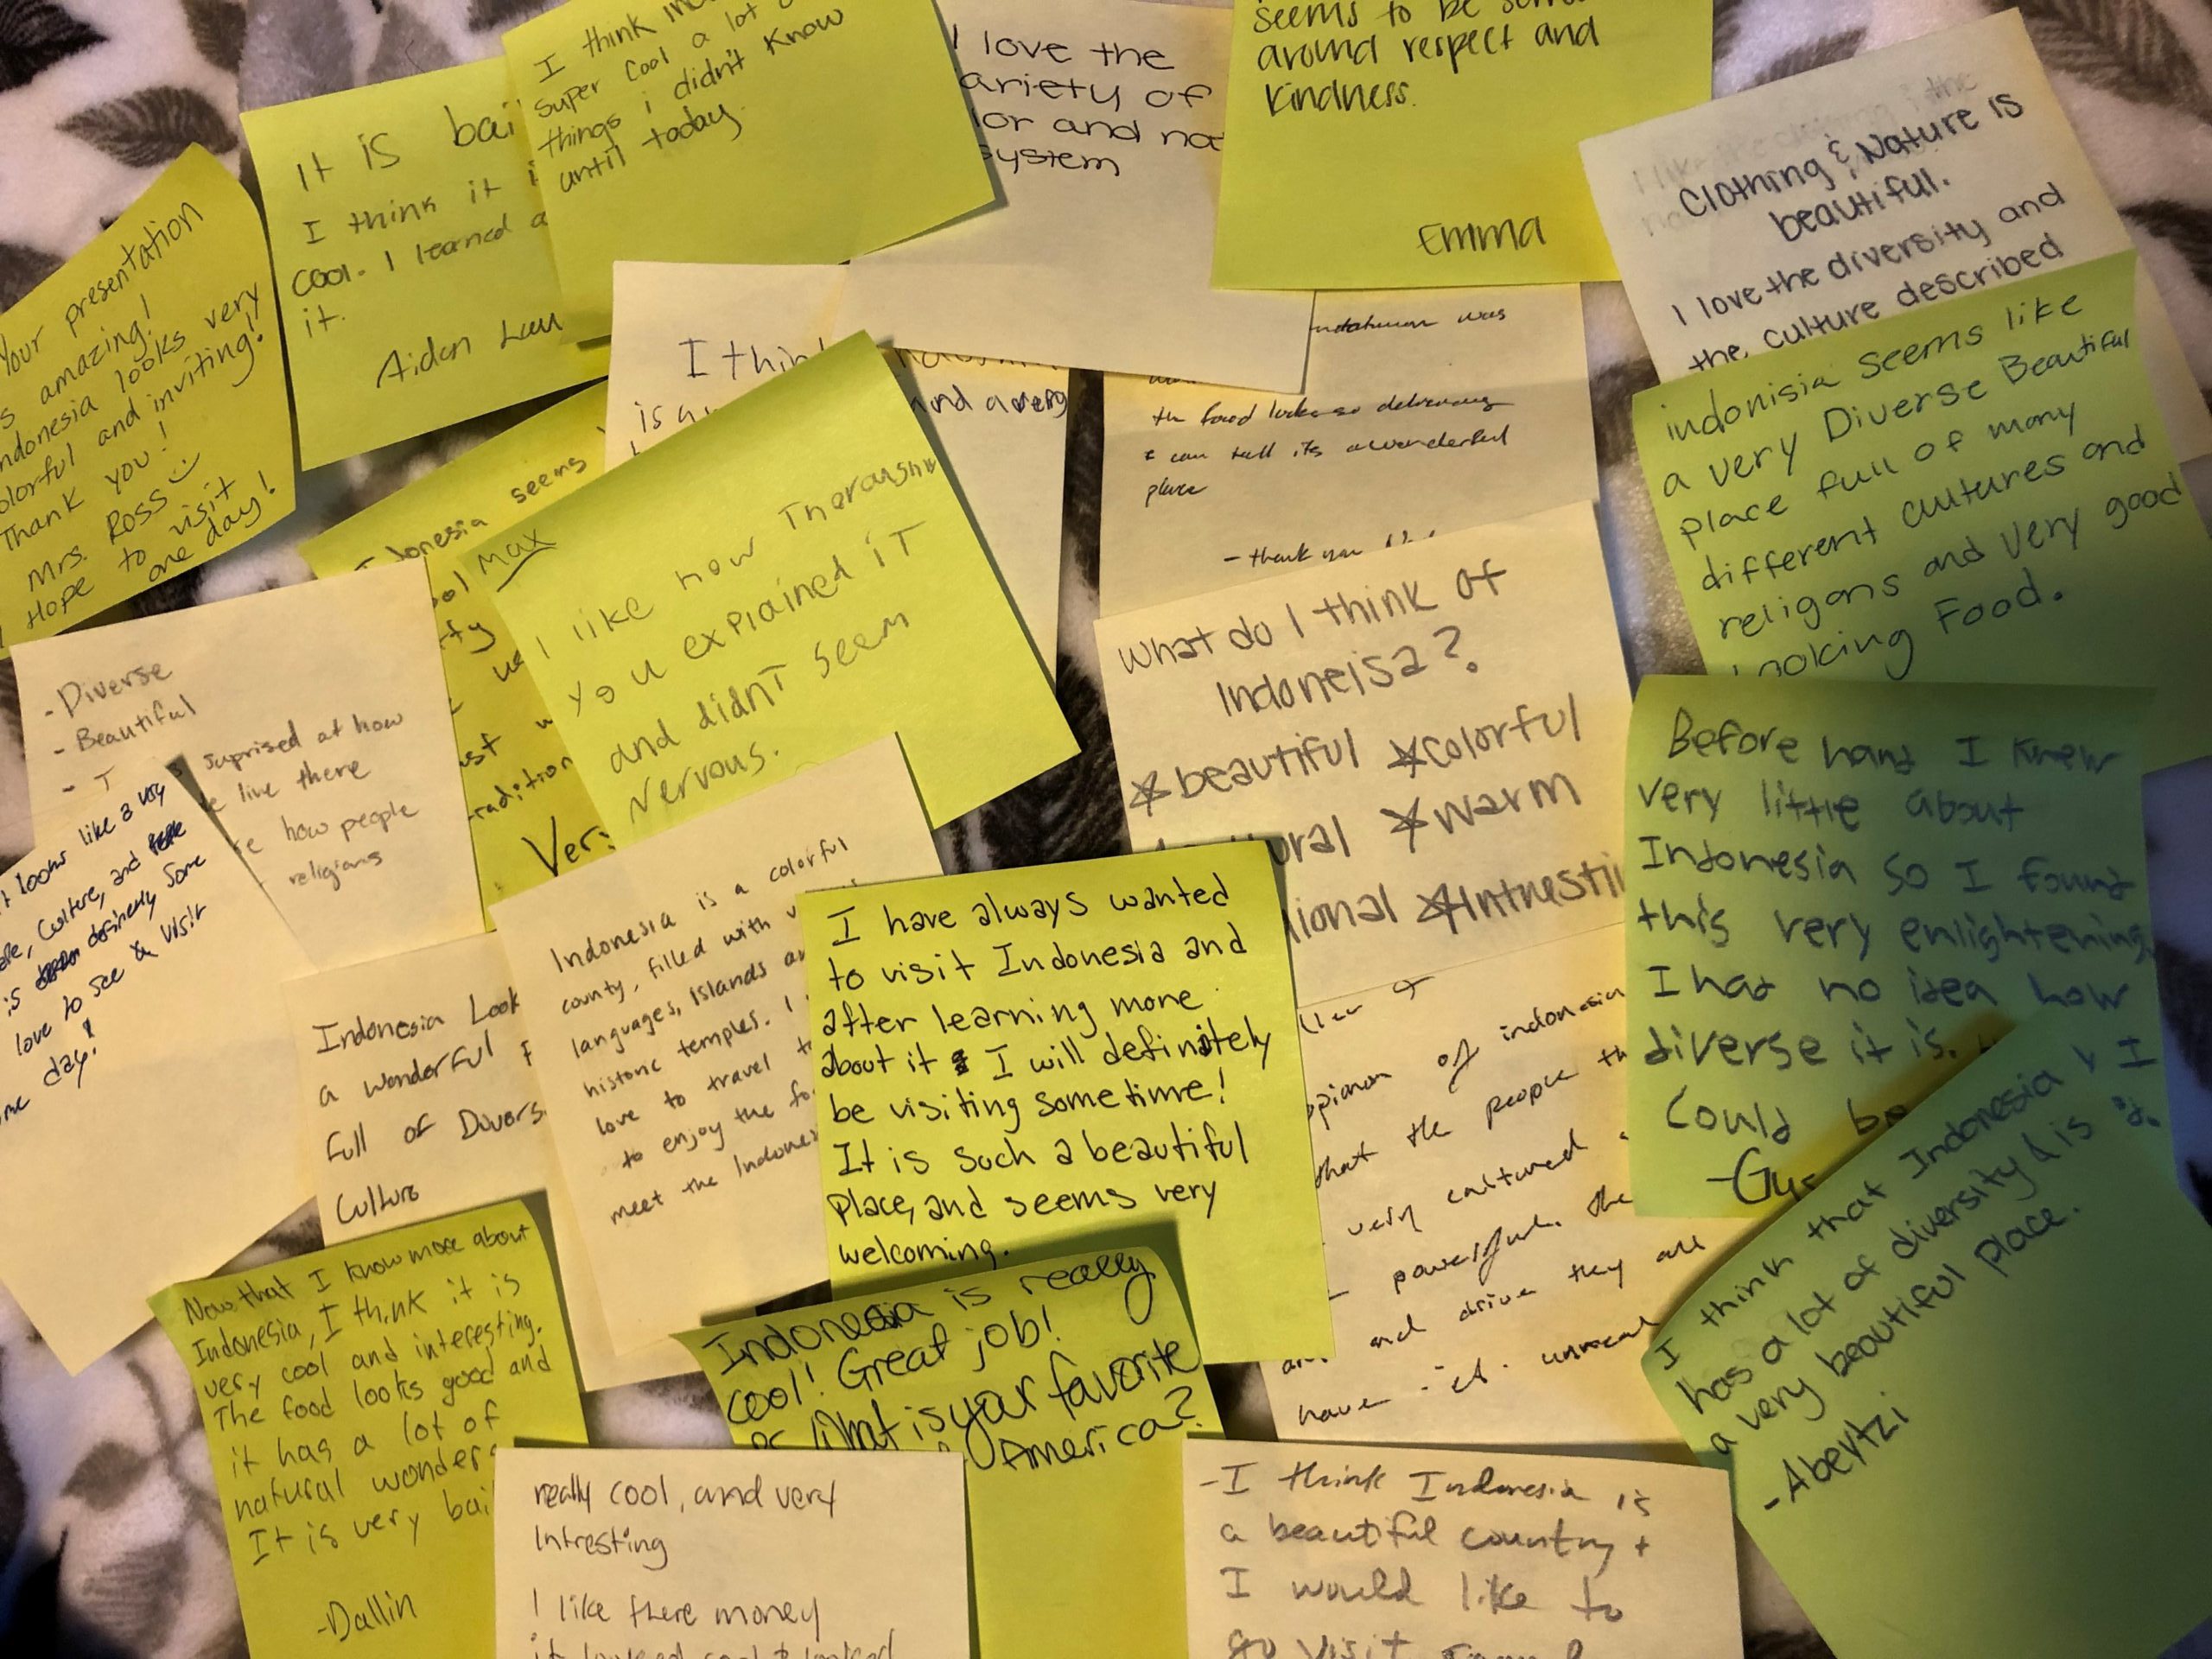 Your presentation
amazing!
Indonesia looks very
colorful and inviting!
Thank you!
Mrs. Ross
Hope to visit
one day!
It is bai
I think it i
cool. I learned a
it.
Aidan Law
I think
super cool a lot
things i didn't know
until today.
I love the
ariety of
lor and na
system
seems to be
around respect and
kindness.
Emma
Clothing & Nature is
beautiful.
I love the diversity and
the culture described
indonisia seems like
a very Diverse Beautiful
place full of many
different cultures and
religons and very good
Looking Food.
was
the food looks so
I can tell its a wonderful
place
- thank you
I thin
is a
and
donesia seems
ool
ty
ust
radition
Ver
Max
I like how Thoroughly
you explained iT
and didnT seem
Nervous.
- Diverse
- Beautiful
- I
suprised at how
e live there
e how people
religians
t looks like a very
Culture, and
is definitely some
love to see & visit
me day!
Indonesia Look
a wonderful
Full of Divers
Culture
Indonesia is a colorful
county, filled with v
languages, Islands an
historic temples. I
love to travel t
to enjoy the fo
meet the Indones
I have always wanted
to visit Indonesia and
after learning more
about it I will definitely
be visiting sometime!
It is such a beautiful
Place, and seems very
welcoming.
What do I think of
Indoneisa?
☆beautiful ☆colorful
ural ☆warm
ional ☆Intrestii
pinion of indonesia
that the people th
very cultured
powerful. the
and drive they are
have is unreal
Before hand I knew
very little about
Indonesia so I found
this very enlightening
I had no idea how
diverse it is.
Could be
-Gus
I think that Indonesia
has a lot of diversity & is
a very beautiful place.
-Abeytzi
Now that I know more about
Indonesia, I think it is
very cool and interesting.
The food looks good and
it has a lot of
natural wonders
It is very bai
-Dallin
Indonesia is really
cool! Great job!
What is your favorite
America?
really cool, and very
Intresting
I like there money
it looked cool & looked
-I think Indonesia is
a beautiful country +
I would like to
go visit